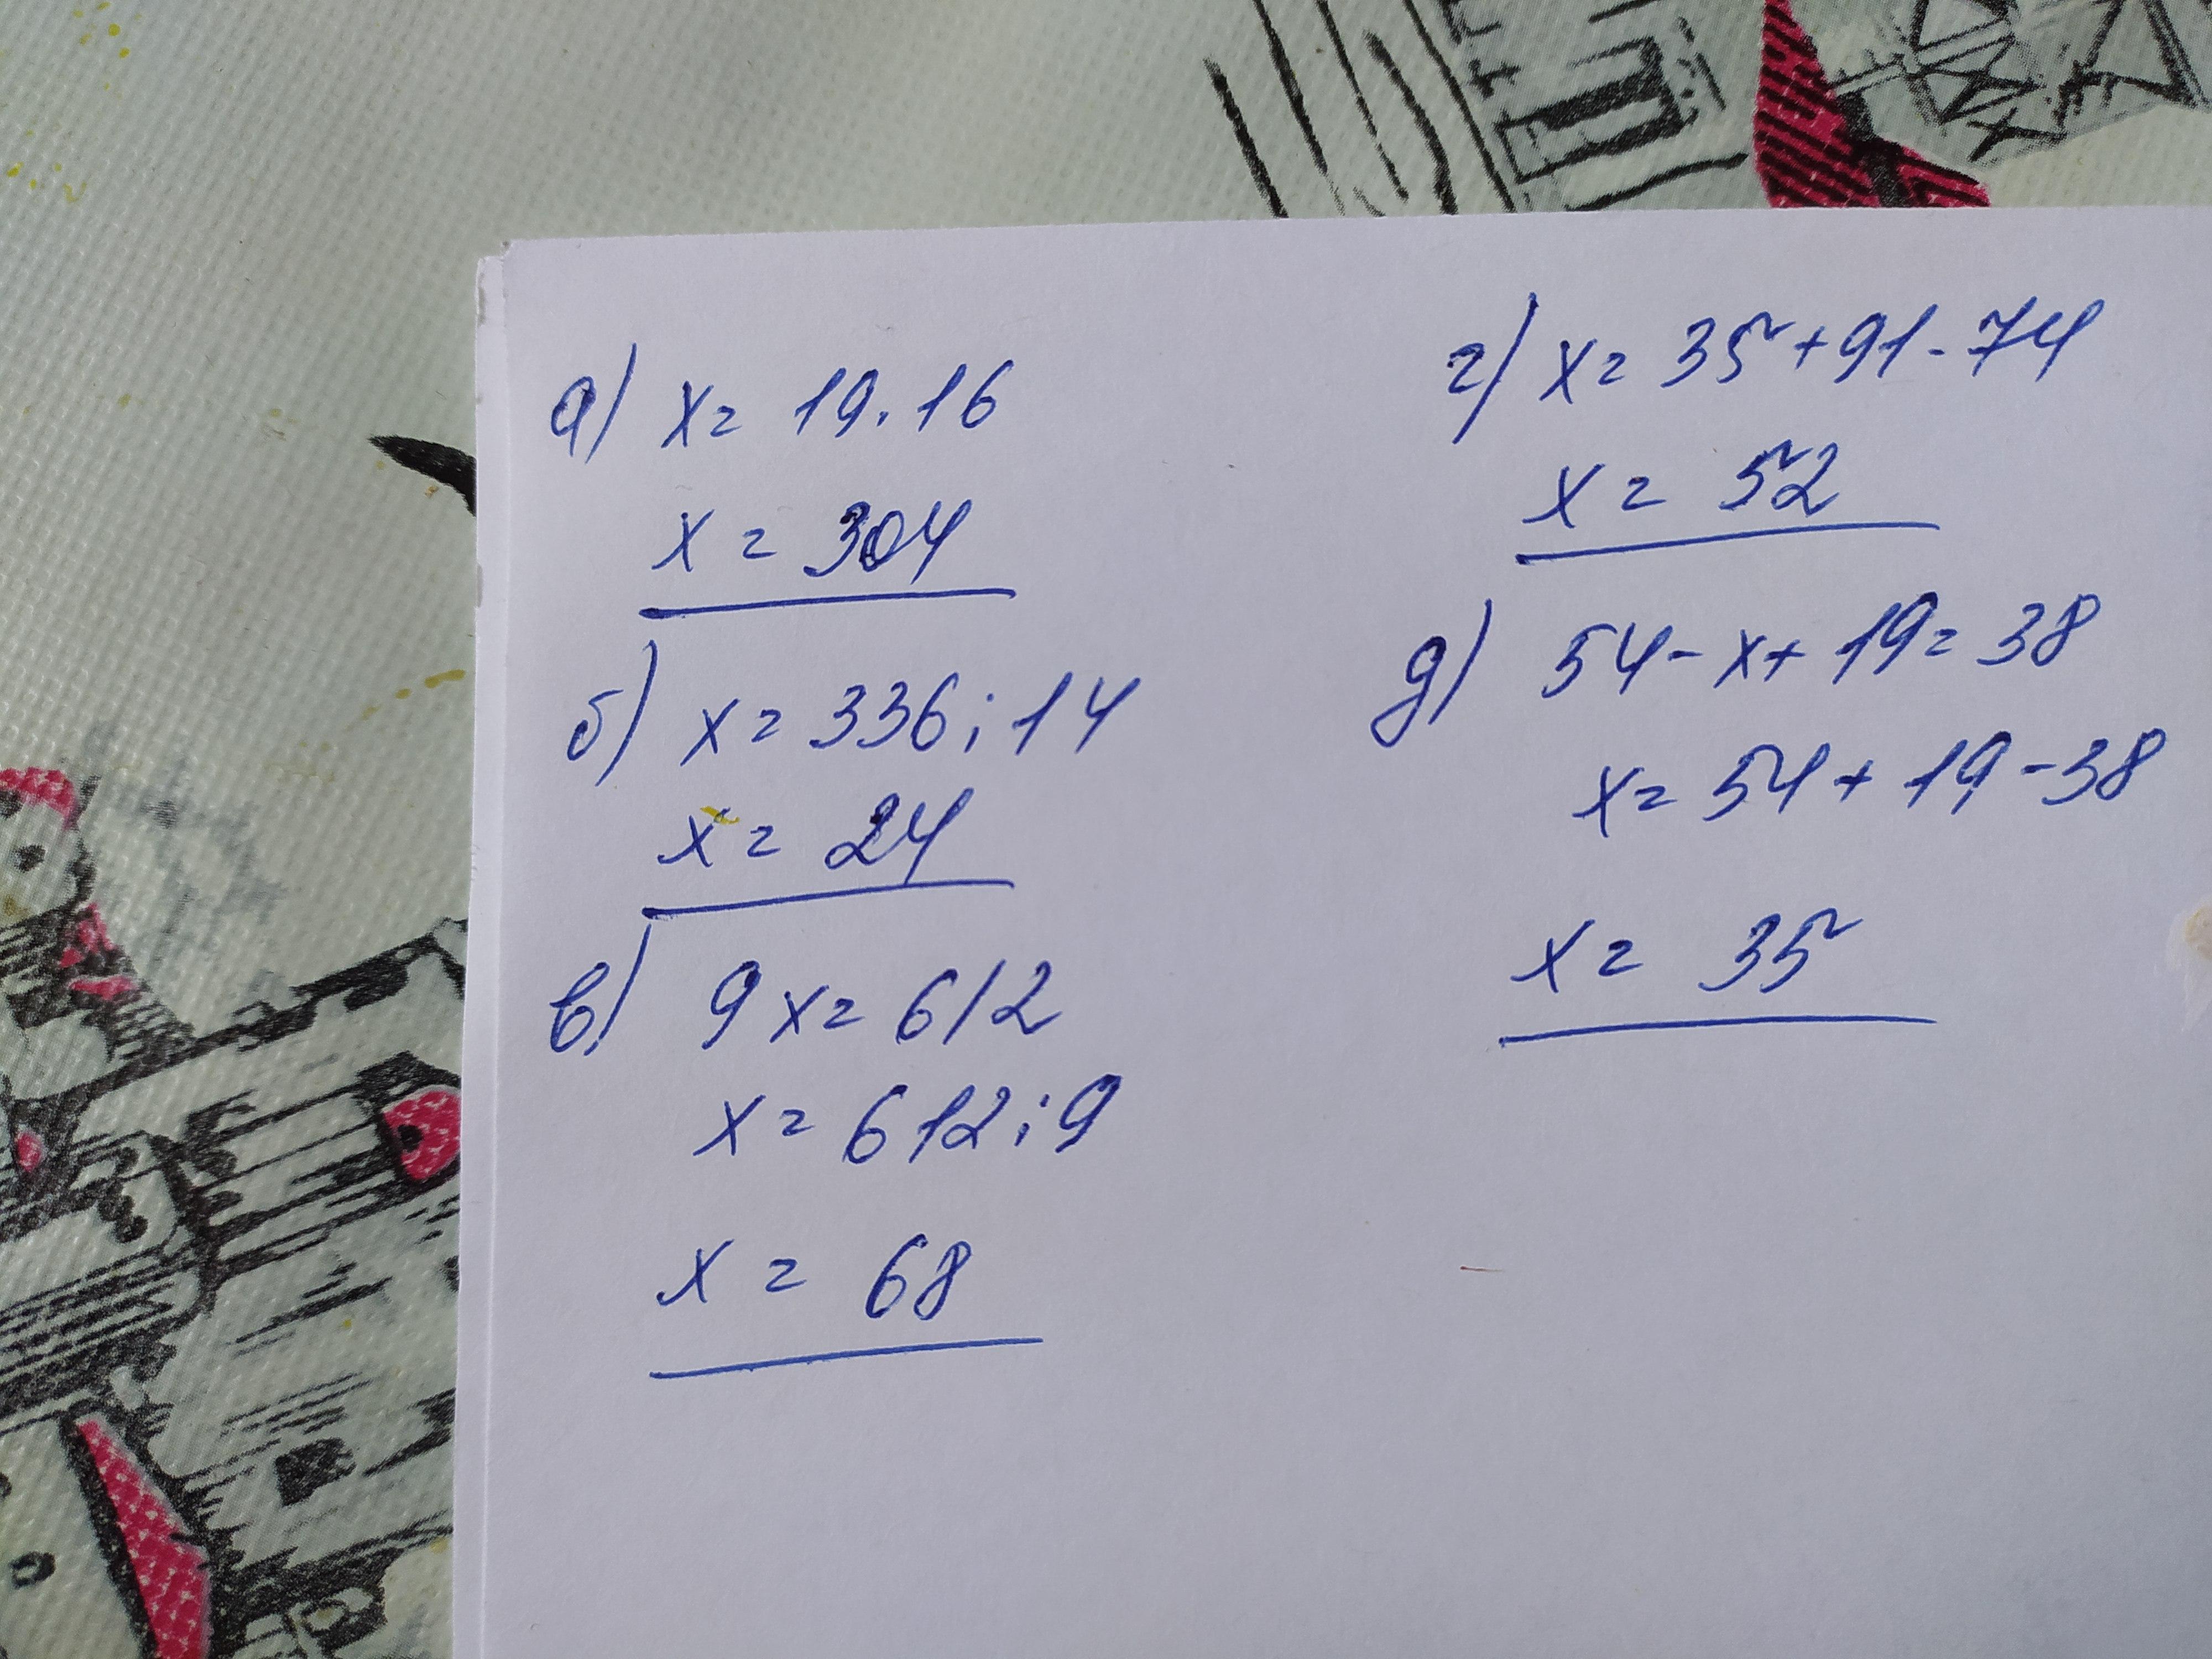 а) x = 19 · 16
x = 304
б) x = 336 : 14
x = 24
в) 9x = 612
x = 612 : 9
x = 68
г) x = 35 + 91 - 74
x = 52
д) 54 - x + 19 = 38
x = 54 + 19 - 38
x = 35